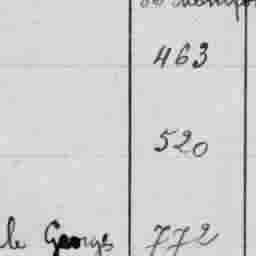 463
520
le Georges 772